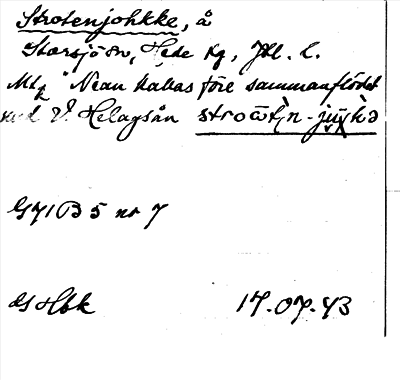 Strotenjohkke, å
Storsjö sn, Hede tg, Jtl. l.
Mtg "Nean kallas före sammanflödet
med V. Helagsån
G 71 B 5 nr 7
ds Hbk 17.07.43